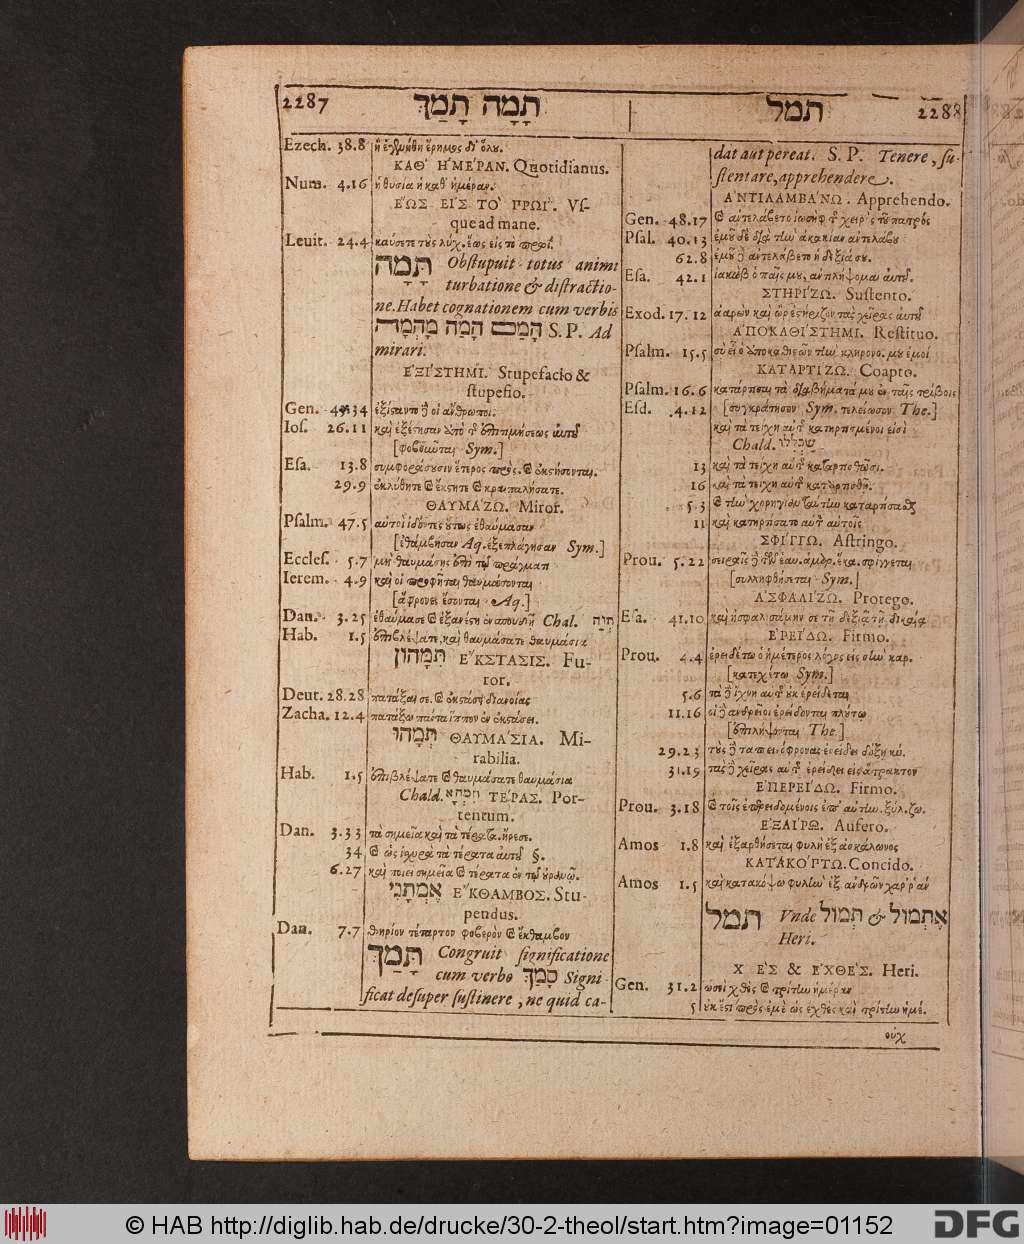 2287 תָּמָה תָּמַךְ
Ezech. 38.8 ἣ ἐγενήθη ἔρημος δι' ὅλου.
ΚΑΘ' ἩΜΕ'ΡΑΝ. Quotidianus.
Num. 4.16 ἡ θυσία ἡ καθ' ἡμέραν.
ἝΩΣ ΕἸΣ ΤΟ' ΠΡΩΙ". Vſ-
que ad mane.
Leuit. 24.4 καύσετε τοὺς λύχ. ἕως εἰς τὸ πρωΐ.
תָּמָה Obſtupuit totus animi
turbatione & diſtractio-
ne. Habet cognationem cum verbis
S. P. Ad
mirari.
ἘΞΙ'ΣΤΗΜΙ. Stupefacio &
ſtupefio.
Gen. 34 ἐξίσταντο δὲ οἱ ἄνθρωποι.
Ioſ. 26.11 καὶ ἐξέστησαν ὑπὸ τῆς ἐπιτιμήσεως αὐτοῦ
[φοβοῦνται Sym.]
Eſa. 13.8 συμφοράσουσιν ἕτερος πρὸς. καὶ ἐκστήσονται.
29.9 ἐκλύθητε καὶ ἔκστητε καὶ κραιπαλήσατε.
ΘΑΥΜΑ'ΖΩ. Miror.
Pſalm. 47.5 αὐτοὶ ἰδόντες οὕτως ἐθαύμασαν
[ἐθάμβησαν Aq. ἐξεπλάγησαν Sym.]
Eccleſ. 5.7 μὴ θαυμάσῃς ἐπὶ τῷ πράγματι
Ierem. 4.9 καὶ οἱ προφῆται θαυμάσονται
[ἄφρονες ἔσονται Aq.]
Dan. 3.25 ἐθαύμασε καὶ ἐξανέστη ἐν σπουδῇ Chal. תְּוַהּ
Hab. 1.5 ἐπιβλέψατε, καὶ θαυμάσατε θαυμάσια
תִּמָּהוֹן ἜΚΣΤΑΣΙΣ. Fu-
ror.
Deut. 28.28 πατάξαι σε. καὶ ἐκστάσει διανοίας
Zacha. 12.4 πατάξω πάντα ἵππον ἐν ἐκστάσει.
תְּמָהוּ ΘΑΥΜΑ'ΣΙΑ. Mi-
rabilia.
Hab. 1.5 ἐπιβλέψατε καὶ θαυμάσατε θαυμάσια
Chald. ΤΕ'ΡΑΣ. Por-
tentum.
Dan. 3.33 τὰ σημεῖα καὶ τὰ τέρατα. ἤρεσε.
34 καὶ ὡς ἰσχυρὰ τὰ τέρατα αὐτοῦ §.
6.27 καὶ ποιεῖ σημεῖα καὶ τέρατα ἐν τῷ οὐρανῷ.
אֶמְתָּנִי ἜΚΘΑΜΒΟΣ. Stu-
pendus.
Dan. 7.7 θηρίον τέταρτον φοβερὸν καὶ ἔκθαμβον
תָּמַךְ Congruit ſignificatione
cum verbo סָמַךְ Signi
ficat deſuper ſuſtinere, ne quid ca-
תמל 2288
dat aut pereat. S. P. Tenere, ſu-
ſtentare, apprehendere.
ἈΝΤΙΛΑΜΒΑ'ΝΩ. Apprehendo.
Gen. 48.17 καὶ ἀντελάβετο ἰωσὴφ τῆς χειρὸς τοῦ πατρὸς
Pſal. 40.13 ἐμοῦ δὲ διὰ τὴν ἀκακίαν ἀντελάβου
62.8 ἐμοῦ δὲ ἀντελάβετο ἡ δεξιά σου.
Eſa. 42.1 ἰακὼβ ὁ παῖς μου, ἀντιλήψομαι αὐτοῦ.
ΣΤΗΡΙ'ΖΩ. Suſtento.
Exod. 17.12 ἀαρὼν καὶ ὢρ ἐστήριζον τὰς χεῖρας αὐτοῦ
ἈΠΟΚΑΘΙ'ΣΤΗΜΙ. Reſtituo.
Pſalm. 15.5 σὺ εἶ ὁ ἀποκαθιστῶν τὴν κληρονο. μου ἐμοί
ΚΑΤΑΡΤΙ'ΖΩ. Coapto.
Pſalm. 16.6 κατάρτισαι τὰ διαβήματά μου ἐν ταῖς τρίβοις
Eſd. 4.12 [συγκράτησον Sym. τελείωσον The.]
καὶ τὰ τείχη αὐτῆς κατηρτισμένοι εἰσὶ
Chald.
13 καὶ τὰ τείχη αὐτῆς καταρτισθῶσι.
16 καὶ τὰ τείχη αὐτῆς καταρτισθῇ.
5.3 καὶ τὴν χορηγίαν ταύτην καταρτίσασθαι
11 καὶ κατηρτίσατο αὐτὴν αὐτοῖς
ΣΦΙ'ΓΓΩ. Aſtringo.
Prou. 5.22 σειραῖς δὲ τῶν ἑαυ. ἁμαρ. ἕκα. σφίγγεται
[συλληφθήσεται Sym.]
ἈΣΦΑΛΙ'ΖΩ. Protego.
Eſa. 41.10 καὶ ἠσφαλισάμην σε τῇ δεξιᾷ τῇ δικαίᾳ
ἘΡΕΙ'ΔΩ. Firmo.
Prou. 4.4 ἐρειδέτω ὁ ἡμέτερος λόγος εἰς σὴν καρ.
[κατεχέτω Sym.]
5.6 τὰ δὲ ἴχνη αὐτῆς οὐκ ἐρείδεται
11.16 οἱ δὲ ἀνδρεῖοι ἐρείδονται πλούτῳ
The.]
29.23 τοὺς δὲ ταπεινόφρονας ἐρείδει δόξῃ κύ.
31.19 τὰς δὲ χεῖρας αὐτῆς ἐρείδει εἰς ἄτρακτον
ἘΠΕΡΕΙ'ΔΩ. Firmo.
Prou. 3.18 καὶ τοῖς ἐπερειδομένοις ἐπ' αὐτὴν. ξύλ. ζω.
ἘΞΑΙ'ΡΩ. Aufero.
Amos 1.8 καὶ ἐξαρθήσεται φυλὴ ἐξ ἀσκάλωνος
ΚΑΤΑΚΟ'ΠΤΩ. Concido.
Amos 1.5 καὶ κατακόψω φυλὴν ἐξ ἀνδρῶν χαρράν
תמל Vnde תְּמוֹל & אֶתְמוֹל
Heri.
ΧΘΕ'Σ & ἘΧΘΕ'Σ. Heri.
Gen. 31.2 ὡσεὶ χθὲς καὶ τρίτην ἡμέραν
5 οὐκ ἔστι πρὸς ἐμὲ ὡς ἐχθὲς καὶ τρίτην ἡμέ.
οὐχ
© HAB http://diglib.hab.de/drucke/30-2-theol/start.htm?image=01152
DFG